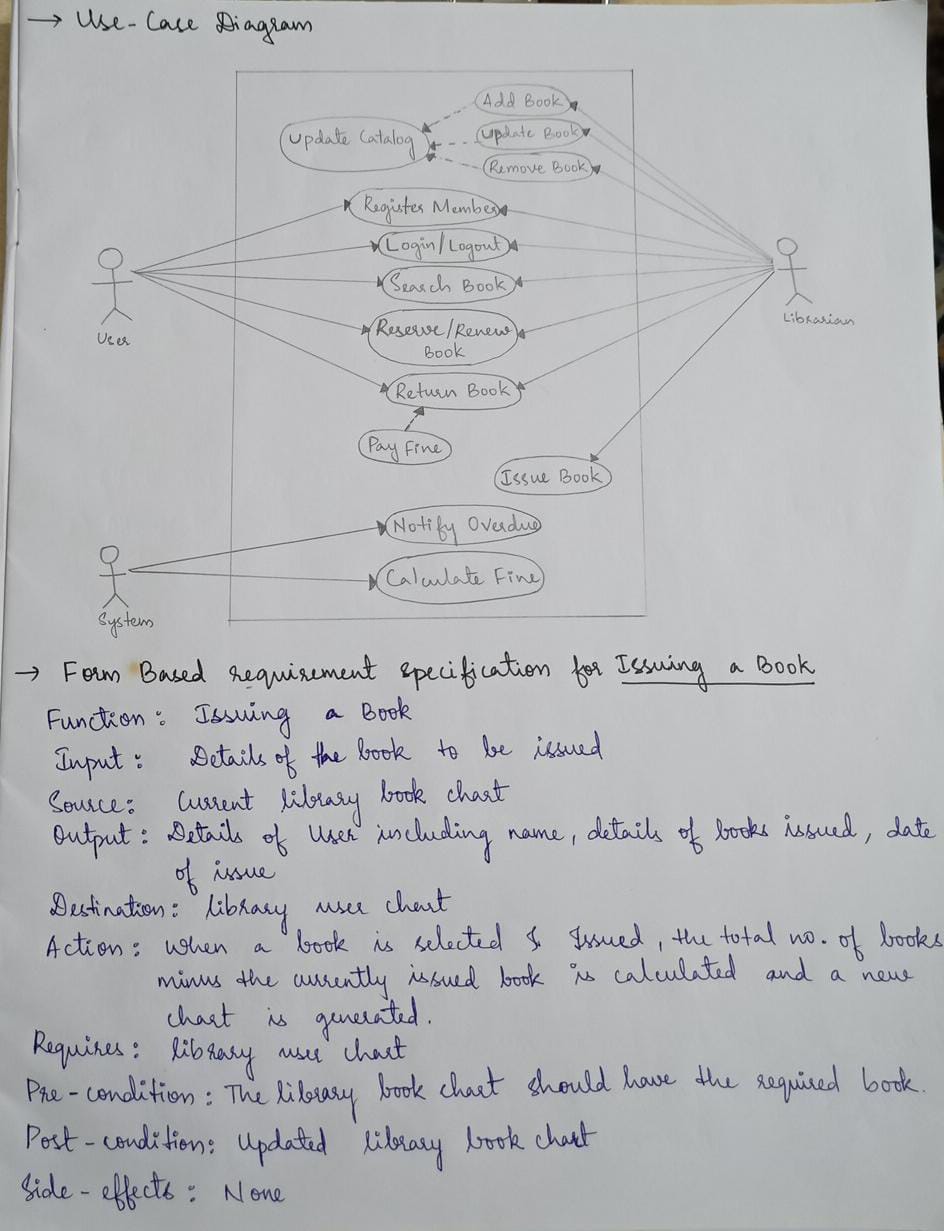 → Use-Case Diagram
Add Book
Update Catalog
Update Book
Remove Book
Register Member
Login/Logout
Search Book
User
Librarian
Reserve/Renew
Book
Return Book
Pay Fine
Issue Book
Notify Overdue
Calculate Fine
System
→ Form Based requirement specification for Issuing a Book
Function: Issuing a Book
Input: Details of the book to be issued
Source: Current library book chart
Output: Details of User including name, details of books issued, date
of issue
Destination: library user chart
Action: When a book is selected & Issued, the total no. of books
minus the currently issued book is calculated and a new
chart is generated.
Requires: library user chart
Pre-condition: The library book chart should have the required book.
Post-condition: Updated library book chart
Side-effects: None